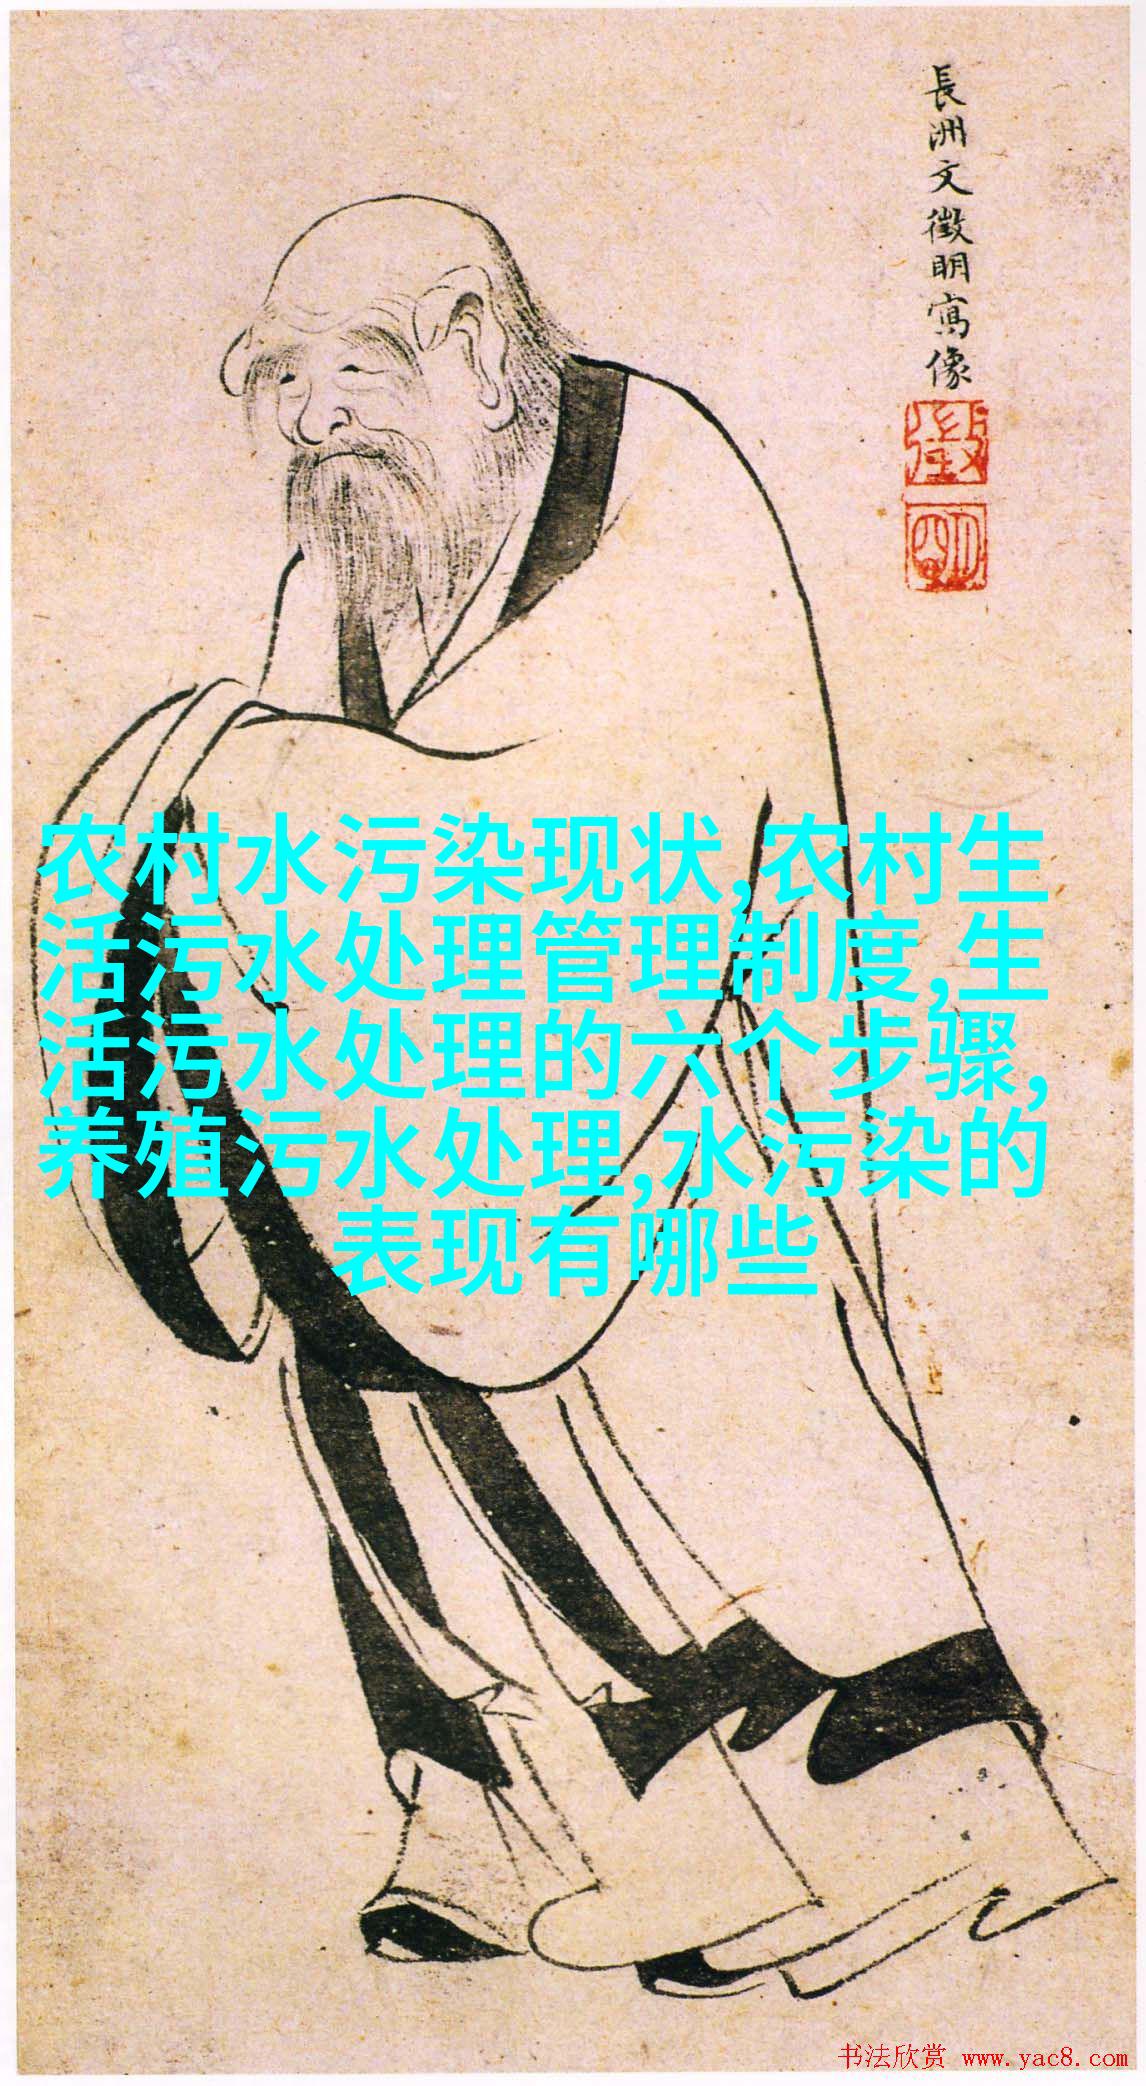 長洲文徵明寫像
徵
明
农村水污染现状,农村生
活污水处理管理制度,生
活污水处理的六个步骤,
养殖污水处理,水污染的
表现有哪些
书法欣赏 www.yac8.com